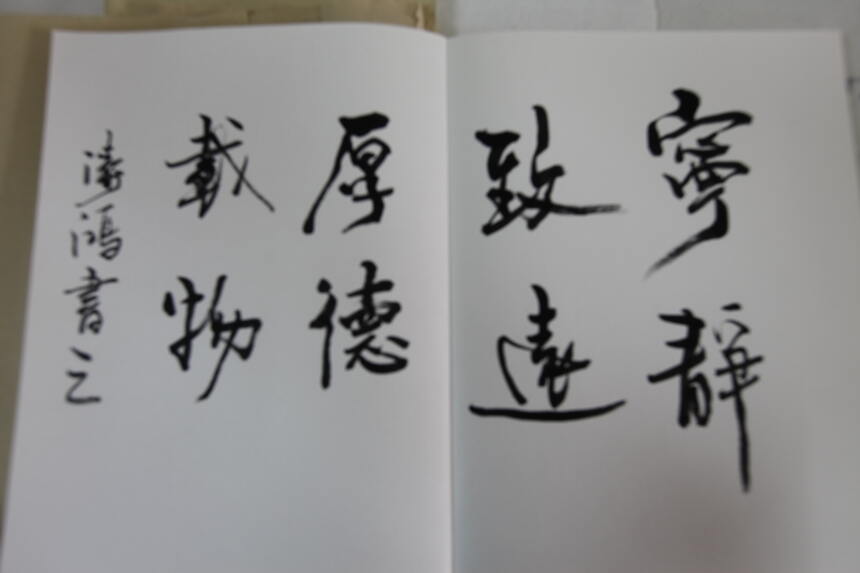 寧靜
致遠
厚德
載物
濤鴻書之